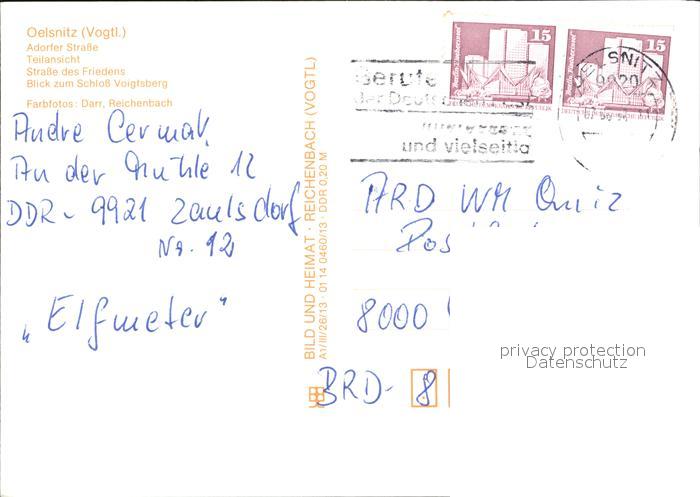 Oelsnitz (Vogtl.)
Adorfer Straße
Teilansicht
Straße des Friedens
Blick zum Schloß Voigtsberg
Farbfotos: Darr, Reichenbach
Andre Cermak
An der Mühle 12
DDR - 9921 Zaulsdorf
Nr. 12
„Elfmeter"
BILD UND HEIMAT · REICHENBACH (VOGTL)
A1/III/26/13 · 01 14 0460/13 · DDR 0,20 M
15
15
und vielseitig
ARD WM Quiz
Pos
8000
BRD - 8
privacy protection
Datenschutz